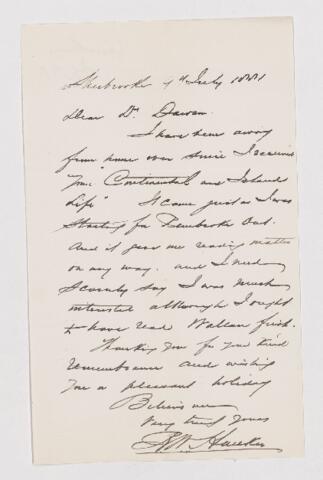 Sherbrooke 9th July 1881
Dear Dr. Dawson.
I have been away
from home ever since I received
your "Continental and Island
Life" It came just as I was
starting for Pembroke Ont.
And it gave me reading matter
on my way. and I need
scarcely say I was much
interested although I ought
to have read first.
Thanking you for your kind
remembrance and wishing
you a pleasant holiday
Believe me
Very truly yours